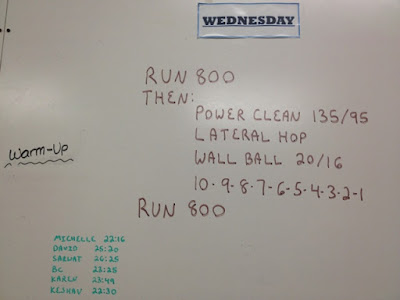 WEDNESDAY
RUN 800
THEN:
POWER CLEAN 135/95
LATERAL HOP
WALL BALL 20/16
10-9-8-7-6-5-4-3-2-1
RUN 800
Warm-Up
MICHELLE 22:16
DAVID 25:20
SARVAT 26:25
BC 23:25
KAREN 23:49
KESHAV 22:30